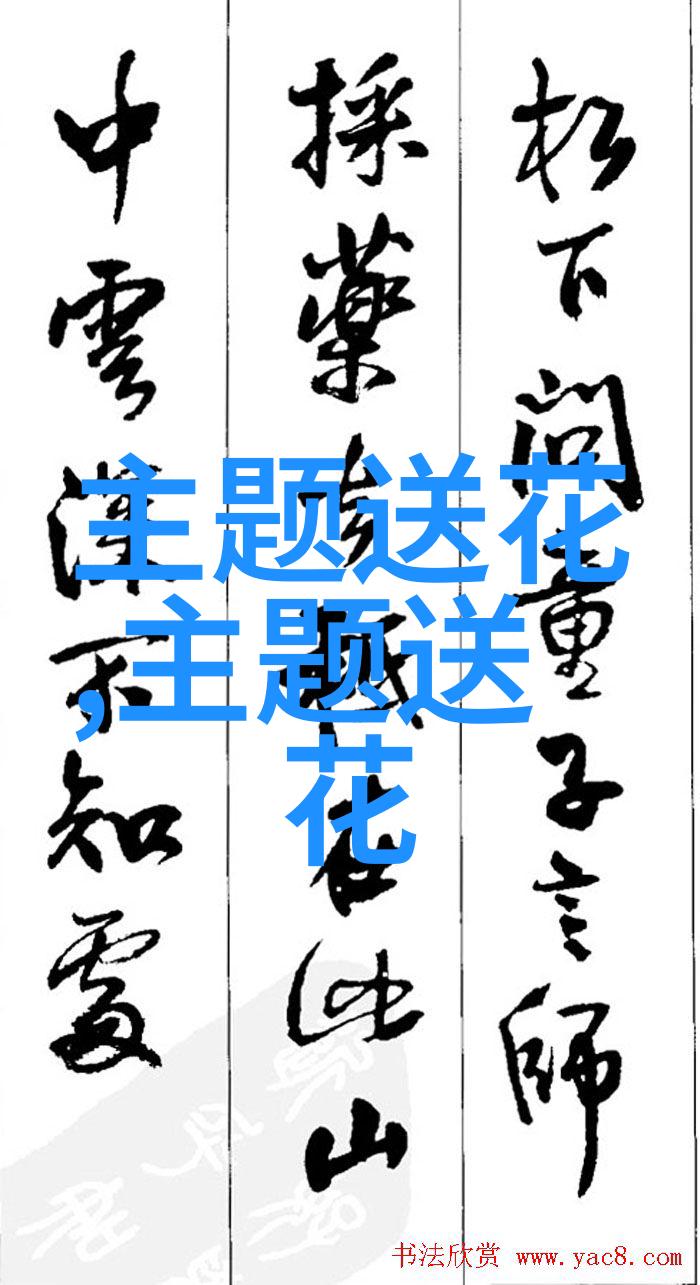 松下问童子言師
採藥去在此山
中雲深不知處
主题送花
,主题送
花
书法欣赏 www.yac8.com